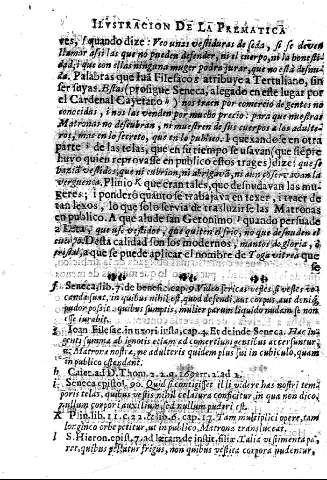 ILVSTRACION DE LA PREMATICA
ves, quando dize: Veo unas vestiduras de seda, si se deven
llamar assi las que no pueden defender, ni el cuerpo, ni la honesti-
dad, i que con ellas ninguna muger podra jurar, que no està desnu-
da. Palabras que Iuā Filesaco atribuye a Tertuliano, sin
ser suyas. Estas (prosigue Seneca, alegado en este lugar por
el Cardenal Cayetano h) nos traen por comercio de gentes no
conocidas, i nos las venden por mucho precio: para que nuestras
Matronas no descubran, ni muestren de sus cuerpos a los adulte-
ros, mas en lo secreto, que en lo publico. I quexandose en otra
parte de las telas, que en su tiempo se usavan (que siēpre
huvo quien reprovasse en publico estos trages) dize: que se
vestidos, que ni cubrian, ni abrigavā, ni aun observavan la
verguença. Plinio K que eran tales, que desnudavan las mu-
geres; i ponderò quanto se trabajava en texer, i traer de
tan lexos, lo que solo servia de traslucirse las Matronas
en publico. A que alude san Geronimo quando persuade
a Leta, que use vestidos, que quiten el frio, no que desnuden el
cuerpo. Desta calidad son los modernos, mantos de gloria, ò
que se puede aplicar el nombre de Toga vitrea que
se
f Seneca, lib. 7. de benefic. cap. 9. Video sericas vestes, si vestes vo-
candæ sunt, in quibus nihil est, quod defendi, aut corpus, aut deniq;
pudor possit: quibus sumptis, mulier parum liquido nudam se non
esse iurabit.
g Ioan. Filesac. in uxori iusta, cap. 4. Et deinde Seneca. Hæc in-
genti summa ab ignotis etiam ad comertium gentibus accersuntur,
ut Matronæ nostræ, ne adulteris quidem plus sui in cubiculo, quam
in publico ostendant.
h Caiet. ad D. Thom. 2. 2. q. 169. ar. 1. ad 2.
i Seneca epistol. 90. Quid si contigisset illi videre has nostri tem-
poris telas, quibus vestis nihil celatura conficitur, in qua non dico,
nullum corpori auxilium, sed nullum pudori est.
K Plin. lib. 11. c. 22. & lib. 6. cap. 17. Tam multiplici opere, tam
longinco orbe petitur, ut in publico, Matrona transluceat.
l S. Hieron. epist. 7. ad Lætam de instit. filiæ. Talia vestimenta pa-
ret, quibus pellatur frigus, non quibus vestita corpora nudentur.